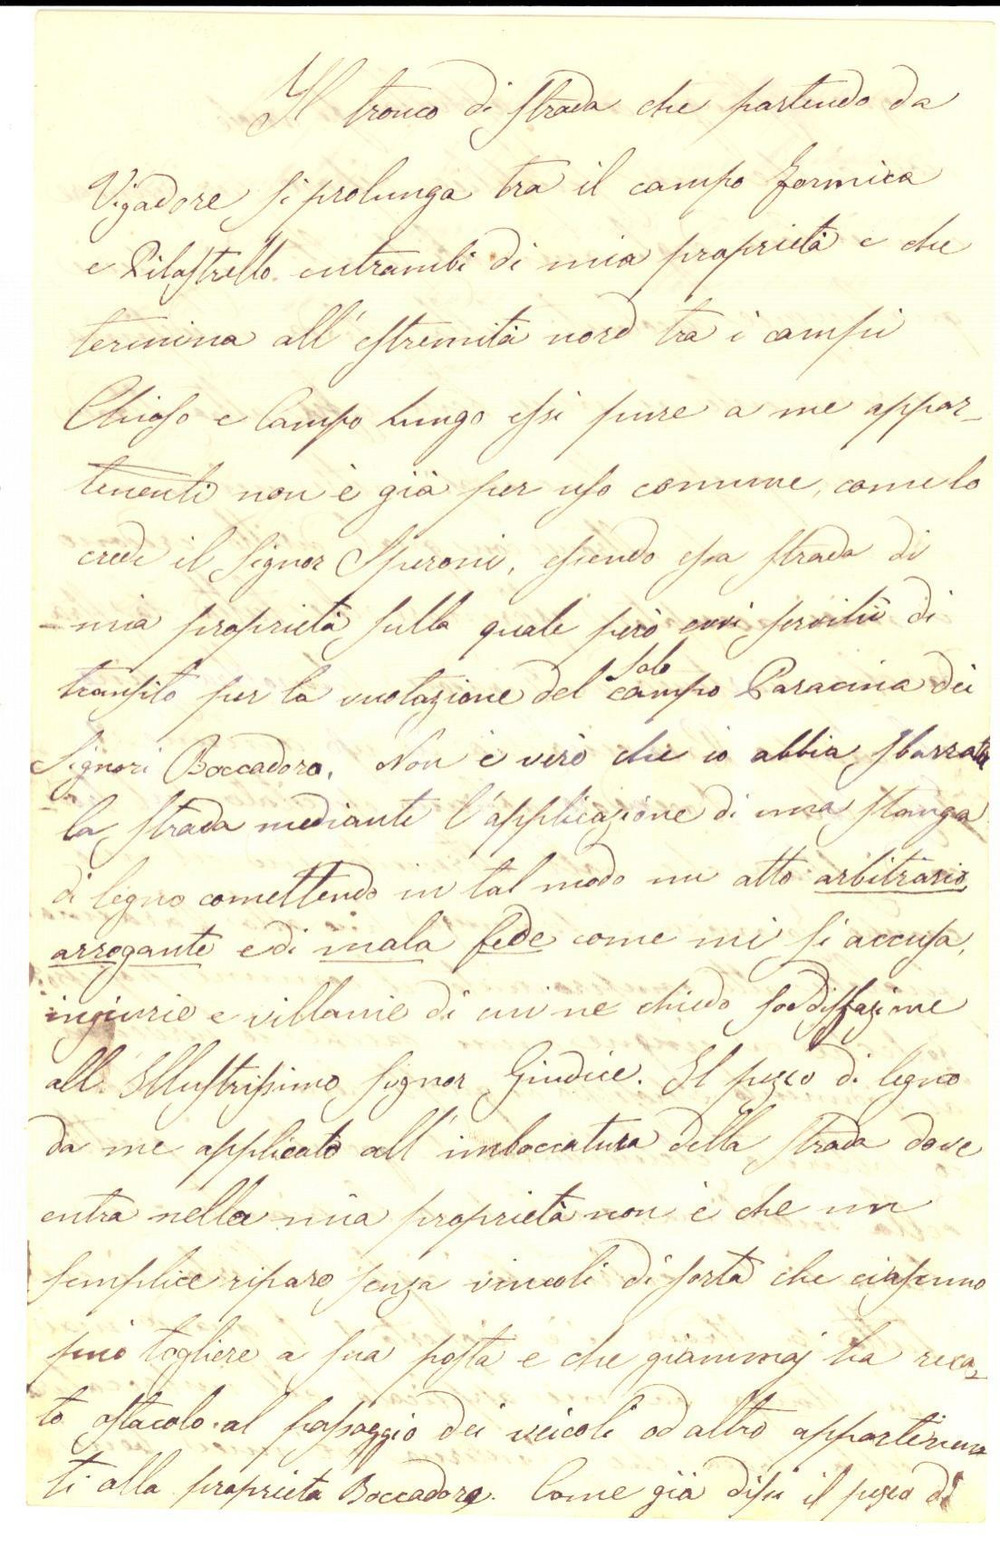 Il tronco di strada che partendo da
Vigadore si prolunga tra il campo Formica
e Pilastrello entrambi di mia proprietà e che
termina all'estremità nord tra i campi
Chioso e Campo Lungo essi pure a me appar-
tenenti non è già per uso comune, come lo
crede il Signor Speroni, essendo essa strada di
mia proprietà sulla quale però evvi servitù di
transito per la vuotazione del solo campo Paracina dei
Signori Boccadoro. Non è vero che io abbia sbarrata
la strada mediante l'applicazione di una stanga
di legno comettendo in tal modo un atto arbitrario,
arrogante e di mala fede come mi si accusa,
ingiurie e villanie di cui ne chiedo soddisfazione
all'Illustrissimo Signor Giudice. Il pezzo di legno
da me applicato all'imboccatura della strada dove
entra nella mia proprietà non è che un
semplice riparo senza vincoli di sorta che ciascuno
può togliere a sua posta e che giammai ha reca-
to ostacolo al passaggio dei veicoli od altro appartenen
ti alla proprietà Boccadoro. Come già dissi il pezzo di